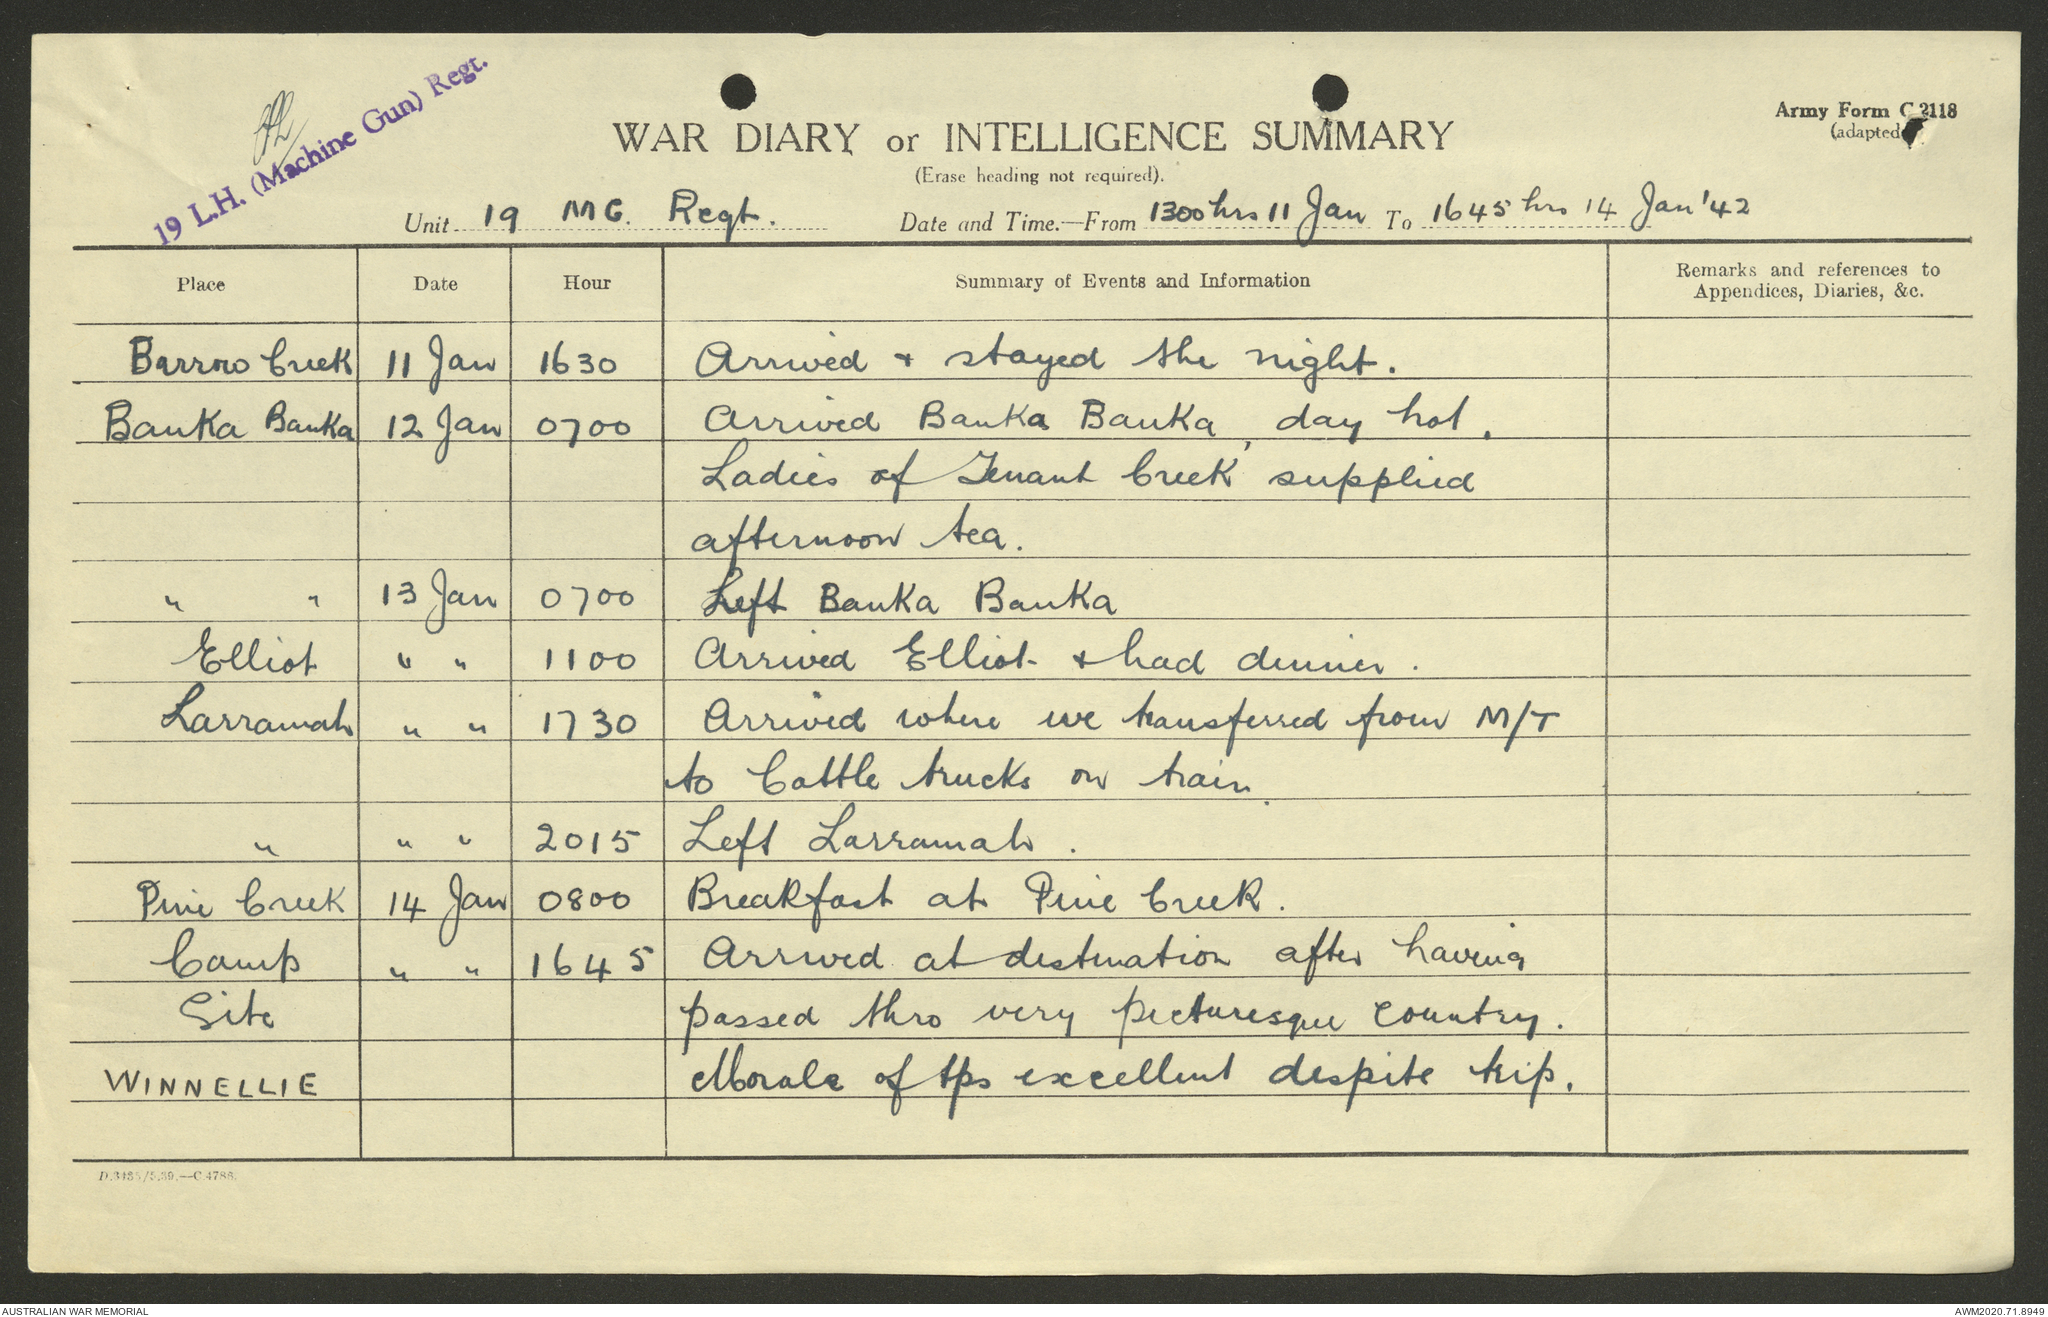 19 L.H. (Machine Gun) Regt.
WAR DIARY or INTELLIGENCE SUMMARY
(Erase heading not required).
Army Form C 2118
(adapted)
Unit 19 MG. Regt. Date and Time.—From 1300 hrs 11 Jan To 1645 hrs 14 Jan '42
Place Date Hour Summary of Events and Information Remarks and references to
Appendices, Diaries, &c.
Barrow Creek 11 Jan 1630 Arrived + stayed the night.
Banka Banka 12 Jan 0700 Arrived Banka Banka, day hot.
Ladies of Tenant Creek supplied
afternoon tea.
" " 13 Jan 0700 Left Banka Banka
Elliot " " 1100 Arrived Elliot + had dinner.
Larramah " " 1730 Arrived where we transferred from M/T
to Cattle trucks on train.
" " " 2015 Left Larramah.
Pine Creek 14 Jan 0800 Breakfast at Pine Creek.
Camp " " 1645 Arrived at destination after having
Site passed thro very picturesque country.
WINNELLIE Morale of tps excellent despite trip.
D.3435/5.39.—C.4788.
AUSTRALIAN WAR MEMORIAL AWM2020.71.8949